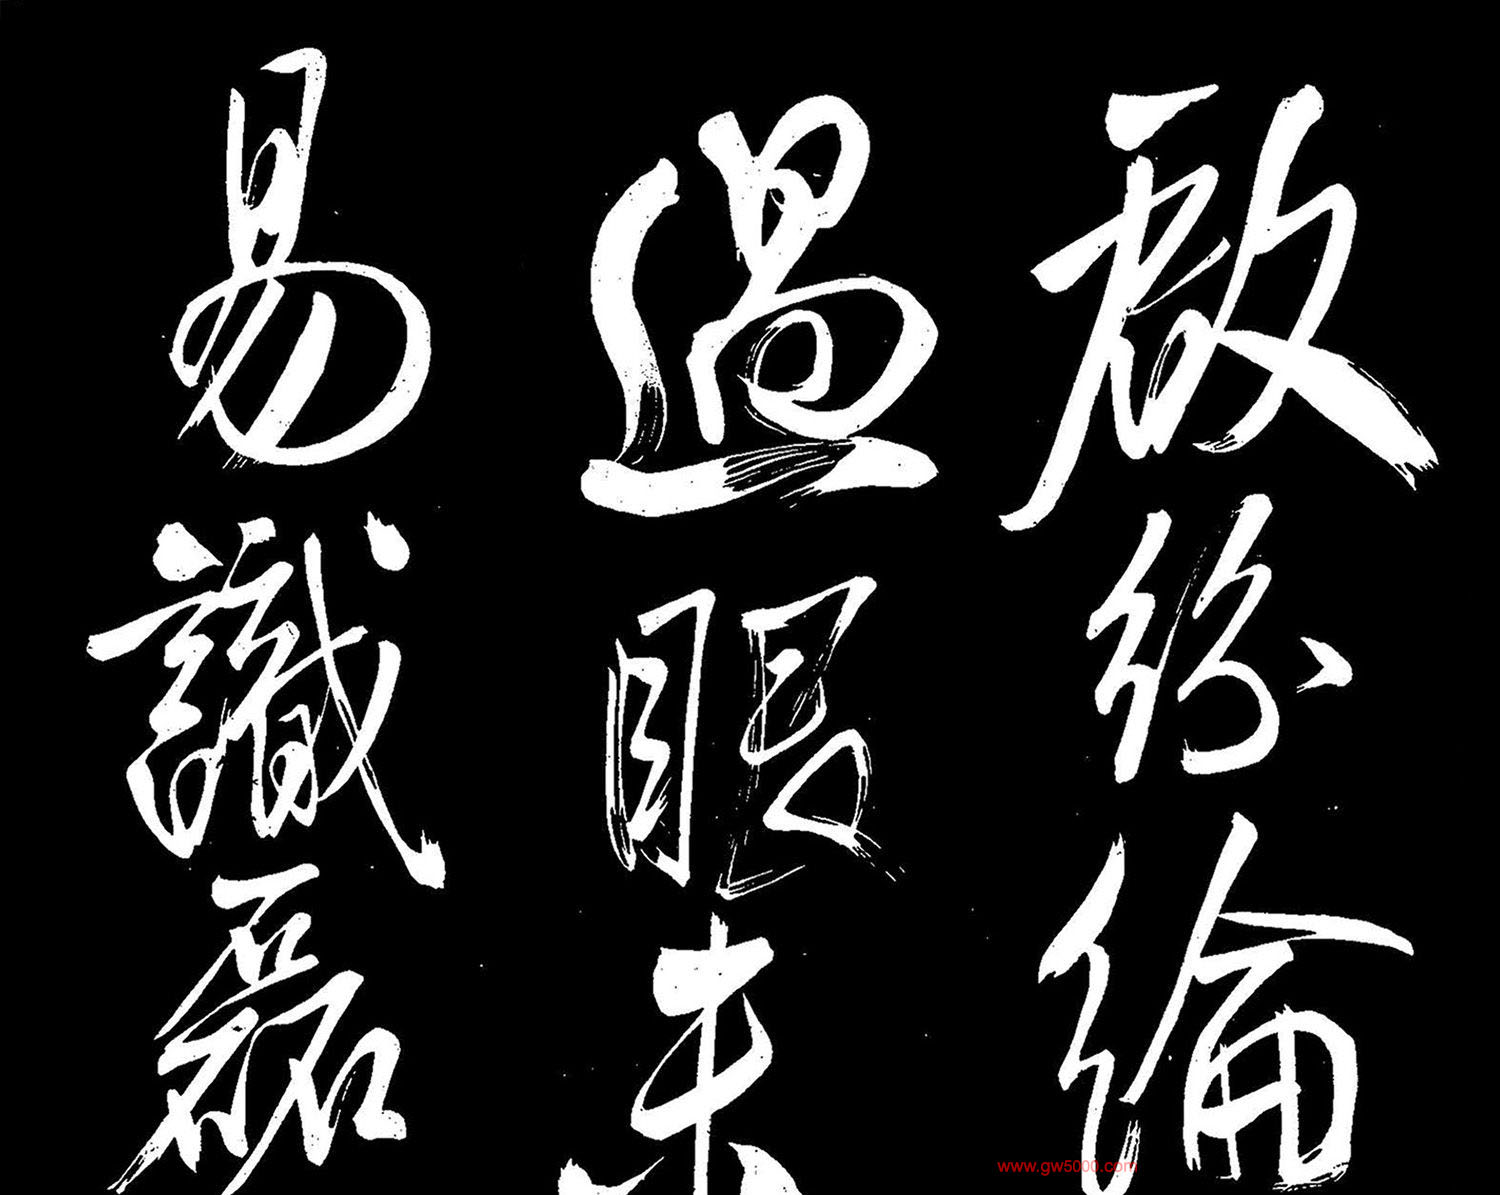 啟紛綸
過眼未
易識磊
www.gw5000.com